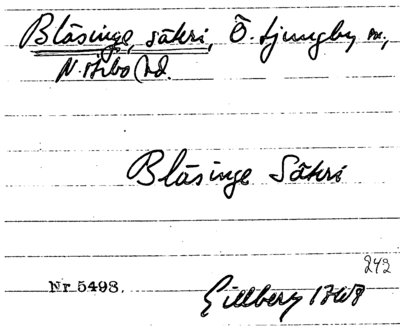 Blåsinge, säteri, Ö. Ljungby sn.,
N. Åsbo hd.
Blåsinge Säteri
242
Nr 5498.
Gillberg 1768